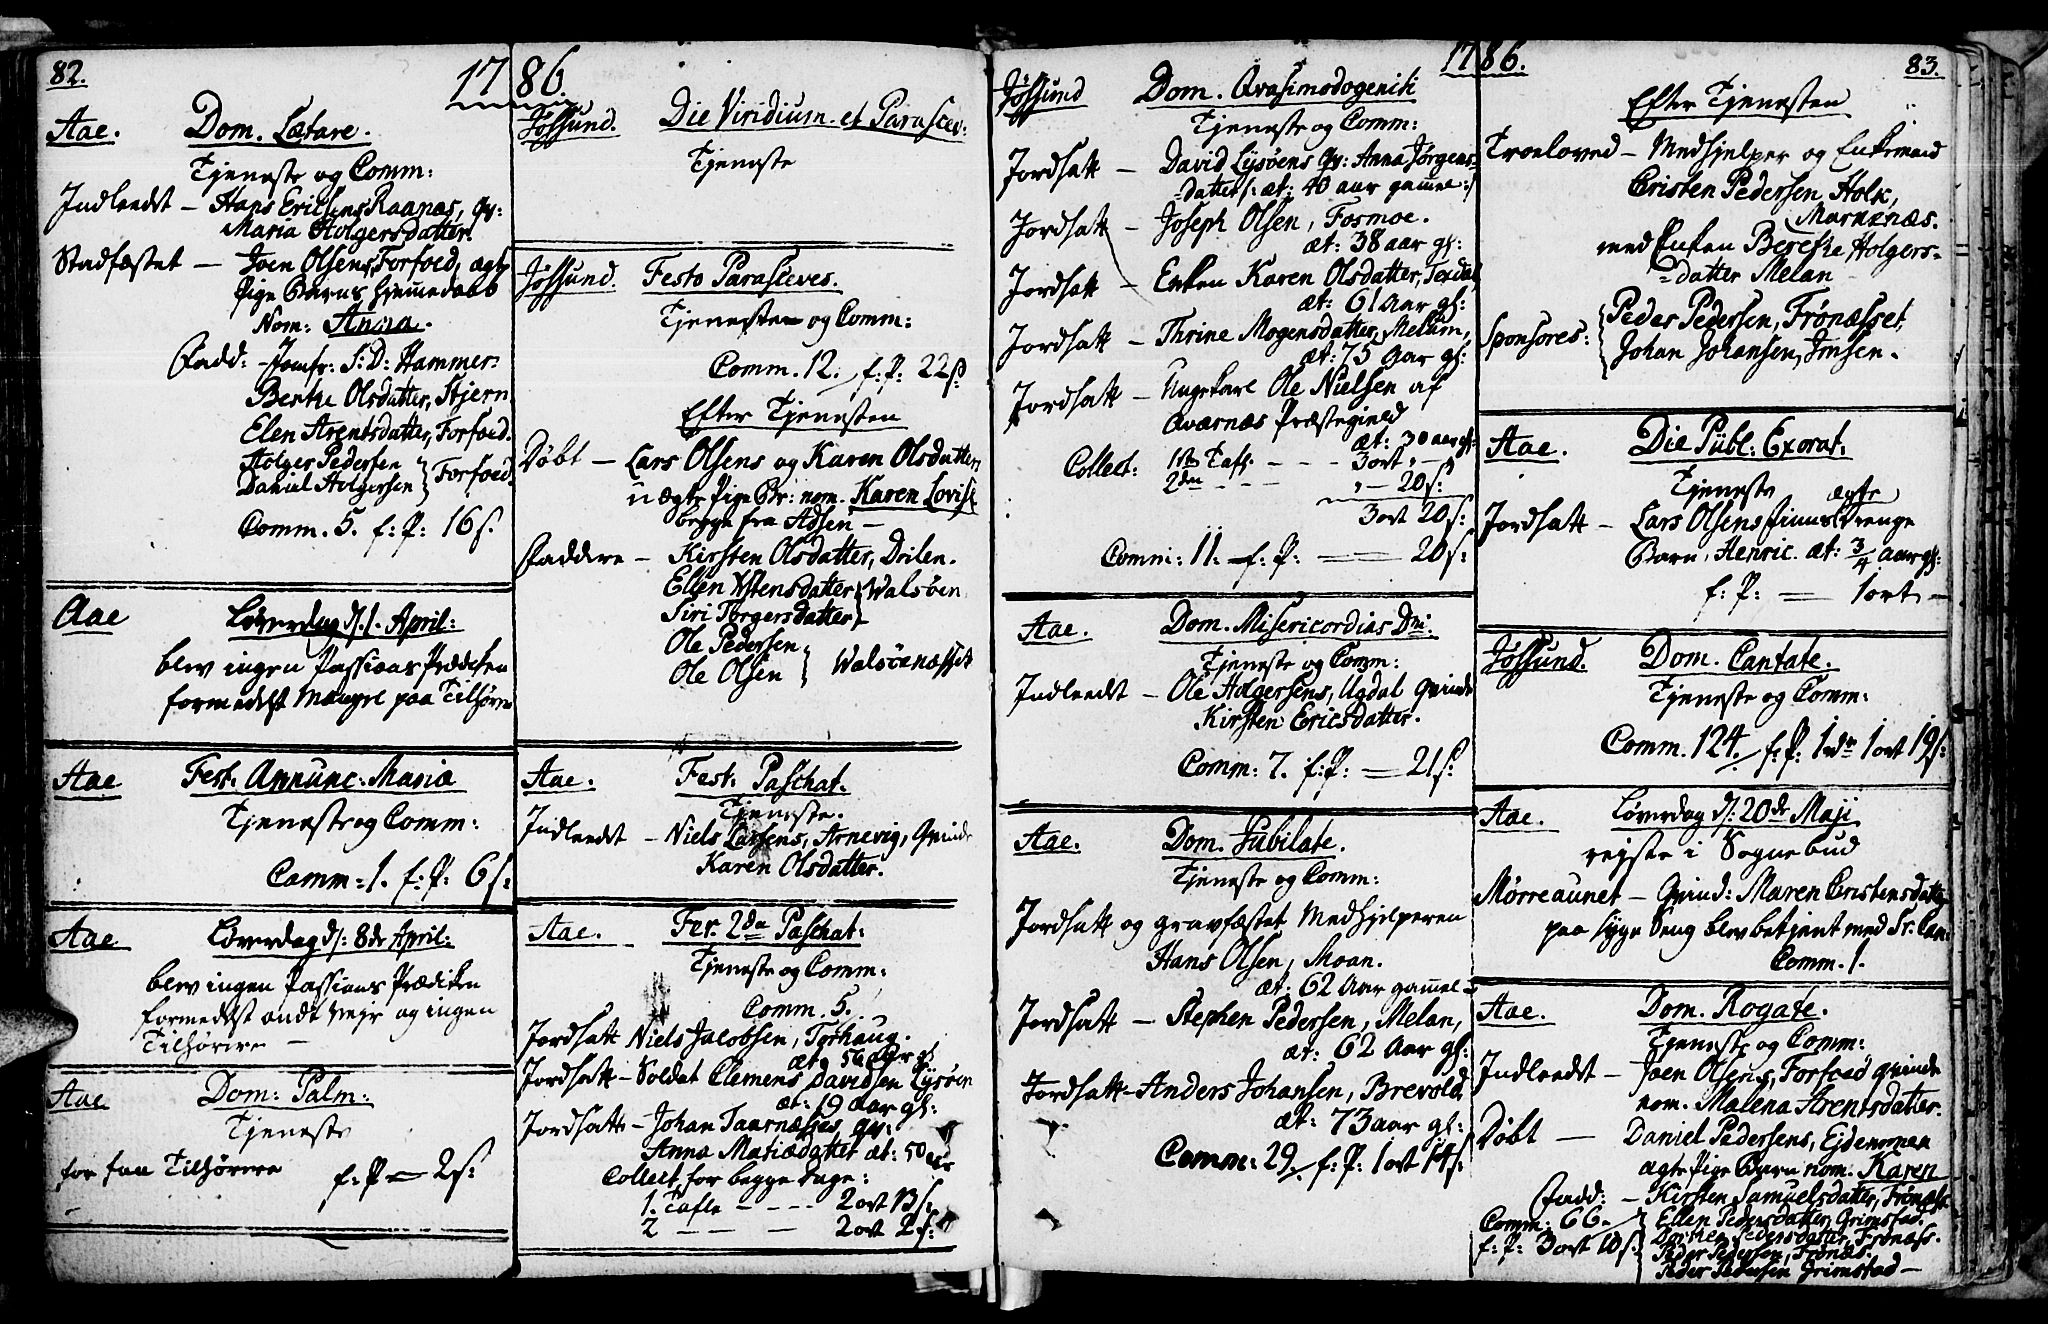 82.
1786.
Aae. Dom. Lætare.
Tjeneste og Comm:
Indleedt — Hans Ericsens Raanæs, qv:
Maria Holgersdatter.
Stadfæstet — Joen Olsens, Forfoed, ægte
Pige Barns hjemmedaab
Nom: Anna.
Fadd: — Jomfr: S: D: Hammer:
Berthe Olsdatter, Stjern
Elen Arentsdatter, Forfoed.
Holger Pedersen
Daniel Holgersen } Forfoed.
Comm. 5. f: P: 16 s.
Aae Løverdag d. 1. April:
blev ingen Passions Prædiken
formedelst Mangel paa Tilhørere
Aae Fest: Annunc: Mariæ
Tjeneste og Comm:
Comm: 1. f: P: 6 s:
Aae Løverdag d: 8de April:
blev ingen Passions Prædiken
formedelst ondt Vejr og ingen
Tilhørere —
Aae Dom: Palm:
Tjeneste
for faa Tilhørere f: P — 2 s:
Jøssund. Die Viridium et Parascev:
Tjeneste
Jøssund. Festo Parasceves.
Tjeneste og Comm:
Comm. 12. f: P: 22 s:
Efter Tjenesten
Døbt — Lars Olsens og Karen Olsdatters
uægte Pige Br: nom. Karen Lovise
begge fra Adsen —
Faddere — Kirsten Olsdatter, Drilen.
Ellen Ystensdatter
Siri Torgersdatter } Walsøen
Ole Pedersen
Ole Olsen } Walsøenæsset
Aae. Fest: Paschat.
Tjeneste.
Indleedt — Niels Larsens, Arnevig, Qvinde
Karen Olsdatter.
Aae. Fer. 2da Paschat:
Tjeneste og Comm:
Comm. 5.
Jordsatt Niels Jacobsen, Torhaug.
æt: 56 aar gl:
Jordsatt — Soldat Clemens Davidsen Lysøen
æt: 19 aar gl:
Jordsatt — Johan Taarnæsses qv:
Anna Matiædatter æt: 50 aar
Collect for begge Dage:
1. Tafle — — — 2 ort 13 s:
2 — — — 2 ort 2 s:
1786.
83.
Jøssund Dom. Qvasimodogeniti
Tjeneste og Comm:
Jordsatt — David Lysøens qv: Anna Jørgens-
datter /: æt: 40 aar gammel :/
Jordsatt — Joseph Olsen, Fosmoe.
æt: 38 aar gl:
Jordsatt — Enken Karen Olsdatter, Texdal,
æt: 61 Aar gl:
Jordsatt — Thrine Mogensdatter, Melum,
æt: 75 Aar gl:
Jordsatt — Ungekarl Ole Nielsen af
Qværnæs Præstegield
æt: 30 aar gl:
Collect: 1ste Tafl: — — — 3 ort " —
2den — — — " — 20 s:
3 ort 20 s:
Comm: 11. — f: P: — — 20 s:
Aae. Dom. Misericordias Dni:
Tjeneste og Comm:
Indleedt — Ole Holgersens, Ugdal Qvinde
Kirsten Ericsdatter.
Comm: 7. f: P: — 21 s:
Aae. Dom. Jubilate.
Tjeneste og Comm:
Jordsatt og gravfæstet Medhjelperen
Hans Olsen, Moan.
æt: 62 Aar gammel —
Jordsatt — Stephen Pedersen, Melan,
æt: 62 Aar gl:
Jordsatt — Anders Johansen, Brevold,
æt: 73 aar gl:
Comm: 29. f: P: 1 ort 14 s:
Efter Tjenesten
Troeloved — Medhjelper og Enkemand
Cristen Pedersen Holk,
Marnænæs.
med Enken Berethe Holgers-
datter Melan
Sponsores: { Peder Pedersen, Frønæsset,
Johan Johansen, Imsen.
Aae. Die Publ: Exorat:
Tjeneste
ægte
Jordsatt — Lars Olsens Drenge
Barn, Henric. æt: 3/4 aar gl:
f: P: — 1 ort —
Jøssund. Dom. Cantate.
Tjeneste og Comm:
Comm. 124. f: P: 1 rdr 1 ort 19 s:
Aae. Løverdag d: 20de Maji
rejste i Sognebud
Mørreaunet — Qvind: Maren Cristensdatter
paa syge Seng blev betjent med Sr. Cæn:
Comm. 1.
Aae. Dom. Rogate.
Tjeneste og Comm:
Indleedt — Joen Olsens, Forfoed Qvinde
nom. Malena Arentsdatter.
Døbt — Daniel Pedersens, Ejdemoen
ægte Pige Barn nom. Karen
Fadd: — Kirsten Samuelsdatter, Frønæss.
Comm: 66. Ellen Pedersdatter, Grimstad.
f: P: 3 ort 10 s: Dorthe Pedersdatter, Frønæss.
Peder Pedersen, Frønæs.
Peder Pedersen Grimstad —